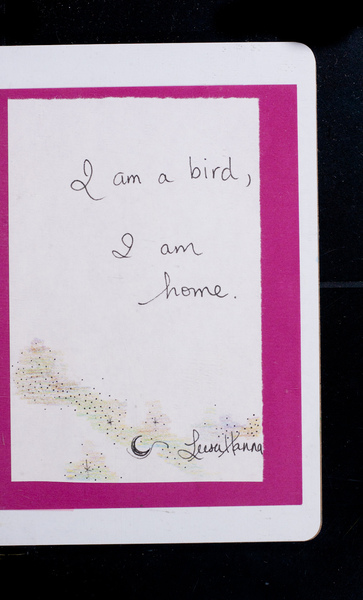 I am a bird,
I am
home.